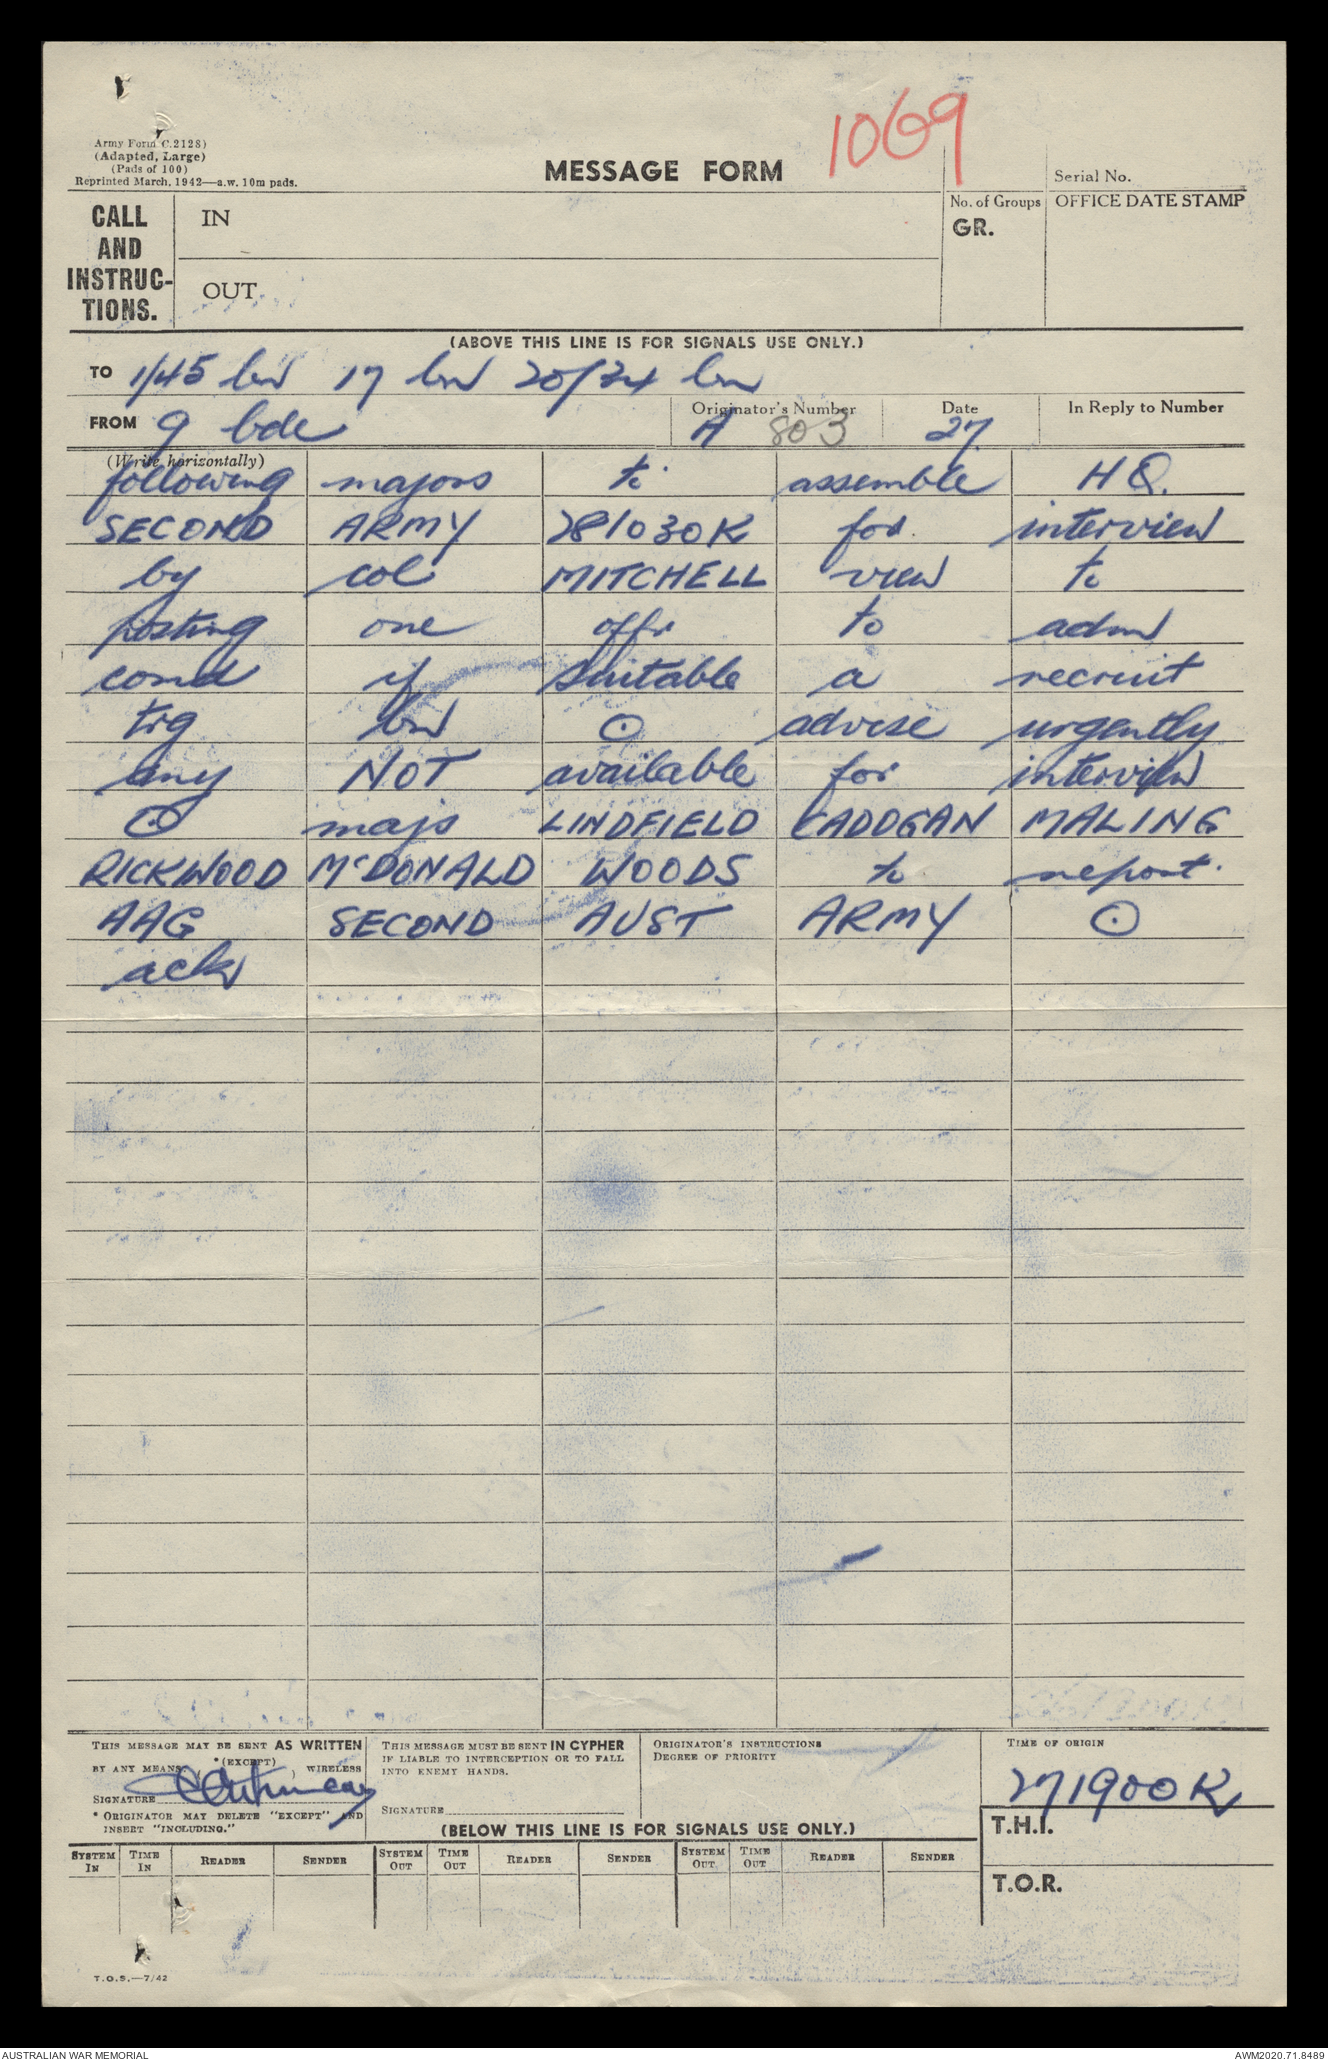 1069
Army Form C.2128)
(Adapted, Large)
(Pads of 100)
Reprinted March, 1942—a.w. 10m pads.
MESSAGE FORM
Serial No.
CALL AND INSTRUC-TIONS.
IN
OUT
No. of Groups
GR.
OFFICE DATE STAMP
(ABOVE THIS LINE IS FOR SIGNALS USE ONLY.)
TO 1/45 bn 17 bn 20/34 bn
FROM 9 bde
Originator's Number
A 803
Date
27
In Reply to Number
(Write horizontally)
following majors to assemble HQ.
SECOND ARMY 281030K for interview
by col MITCHELL view to
posting one offr to adm
comd if suitable a recruit
trg bn ⊙ advise urgently
any NOT available for interview
⊙ majs LINDFIELD CADOGAN MALING
RICKWOOD McDONALD WOODS to report.
AAG SECOND AUST ARMY ⊙
ack
THIS MESSAGE MAY BE SENT AS WRITTEN
BY ANY MEANS *(EXCEPT) WIRELESS
SIGNATURE
* ORIGINATOR MAY DELETE "EXCEPT" AND
INSERT "INCLUDING."
THIS MESSAGE MUST BE SENT IN CYPHER
IF LIABLE TO INTERCEPTION OR TO FALL
INTO ENEMY HANDS.
SIGNATURE
ORIGINATOR'S INSTRUCTIONS
DEGREE OF PRIORITY
TIME OF ORIGIN
271900K
(BELOW THIS LINE IS FOR SIGNALS USE ONLY.)
T.H.I.
SYSTEM IN TIME IN READER SENDER SYSTEM OUT TIME OUT READER SENDER SYSTEM OUT. TIME OUT READER SENDER
T.O.R.
T.O.S.—7/42
AUSTRALIAN WAR MEMORIAL
AWM2020.71.8489